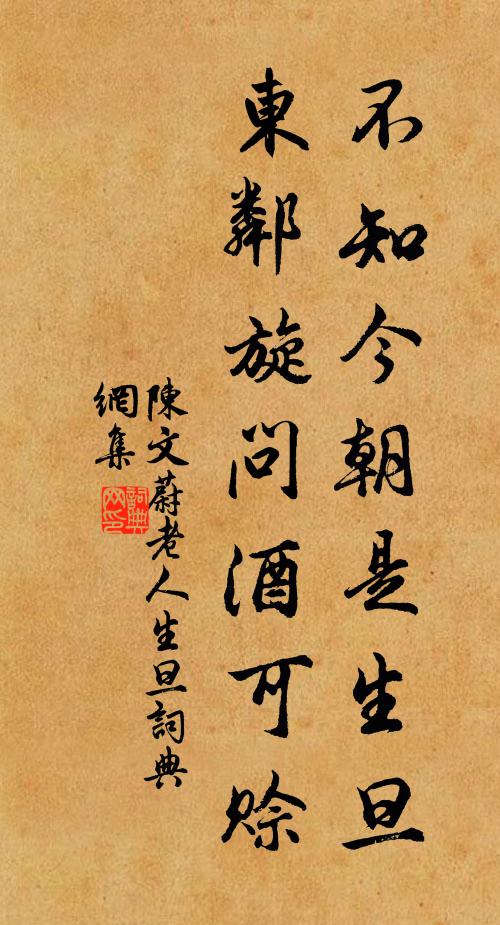 不知今朝是生旦
東鄰旋問酒可賒
陳文蔚老人生旦詞典
網集
詞典
网印